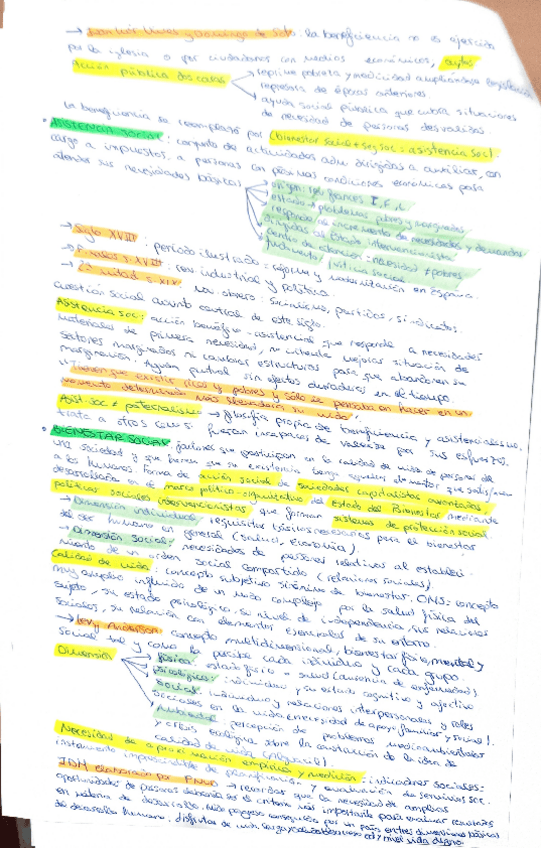 → Juan Luis Vives y Domingo de Soto: la beneficiencia no es ejercida
por la iglesia o por ciudadanos con medios económicos,
Acción pública dos caras → reprime pobreza y mendicidad
represora de épocas anteriores
ayuda social pública que cubra situaciones
de necesidad de personas desvalidas.
La beneficencia se reemplaza por (bienestar social + seg soc: asistencia soc).
• ASISTENCIA SOCIAL: conjunto de actividades adm dirigidas a auxiliar, con
cargo a impuestos, a personas con pésimas condiciones económicas para
atender sus necesidades básicas
origen:
problemas pobres y marginados
responde a incremento de necesidades y demandas
al Estado intervencionista
centro de atención: necesidad ≠ pobres
fundamento: justicia social
→ Siglo XVIII: periodo ilustrado: reforma y modernización en España.
→ s. XVIII: rev industrial y política
→ 2ª mitad s. XIX: mov. obrero: sindicatos, partidos,
cuestión social asunto central de este siglo.
Asistencia soc: acción benéfico-asistencial que responde a necesidades
materiales de primera necesidad, no intenta mejorar situación de
sectores marginados ni cambiar estructuras para que abandonen su
marginación. Ayuda puntual sin efectos duraderos en el tiempo.
"Tienen que existir ricos y pobres y sólo se pensaba en hacer en un
momento determinado más llevadera su vida".
Asist. soc ≠ paternalismo → filosofía propia de beneficencia y asistencialismo.
trata a otros como si fueran incapaces de valerse por sus esfuerzos.
• BIENESTAR SOCIAL: factores que participan en la calidad de vida de personas de
una sociedad y que hacen que su existencia tenga aquellos elementos que satisfacen
a los humanos. Forma de acción social de sociedades capitalistas avanzadas,
desarrollada en el marco político-organizativo del Estado del Bienestar mediante
políticas sociales intervencionistas que forman sistemas de protección social.
→ Dimensión individual: requisitos básicos necesarios para el bienestar
del ser humano en general (salud, economía).
→ Dimensión social: necesidades de personas relativas al estableci-
miento de un orden social compartido (relaciones sociales)
Calidad de vida: concepto subjetivo sinónimo de bienestar. OMS: concepto
muy amplio influido de un modo complejo por la salud física del
sujeto, su estado psicológico, su nivel de independencia, sus relaciones
sociales, su relación con elementos esenciales de su entorno.
→ Levy Anderson: concepto multidimensional, bienestar físico, mental y
social tal y como lo percibe cada individuo y cada grupo.
Dimensión
física: estado físico = salud (ausencia de enfermedad)
psicológica: individuo y su estado cognitivo y afectivo
social: individuo y relaciones interpersonales y roles
sociales en la vida (necesidad de apoyo familiar y social).
Ambiental: percepción de problemas medioambientales
y crisis ecológica sobre la construcción de la idea de
calidad de vida
Necesidad de aproximación empírica y medición: indicadores sociales:
instrumento imprescindible de planificación y evaluación de servicios soc.
IDH elaborado por PNUD → recordar que la necesidad de ampliar
oportunidades de personas debería ser el criterio más importante para evaluar resultados
en materia de desarrollo. Mide progreso conseguido por un país en tres dimensiones básicas
de desarrollo humano: disfrutar de vida larga y saludable, acceso ed y nivel vida digno.